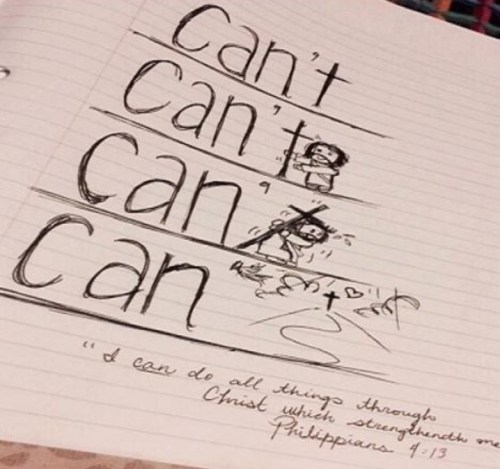 Can't
Can't
Can'
Can
"I can do all things through
Christ which strengtheneth me
Philippians 4:13